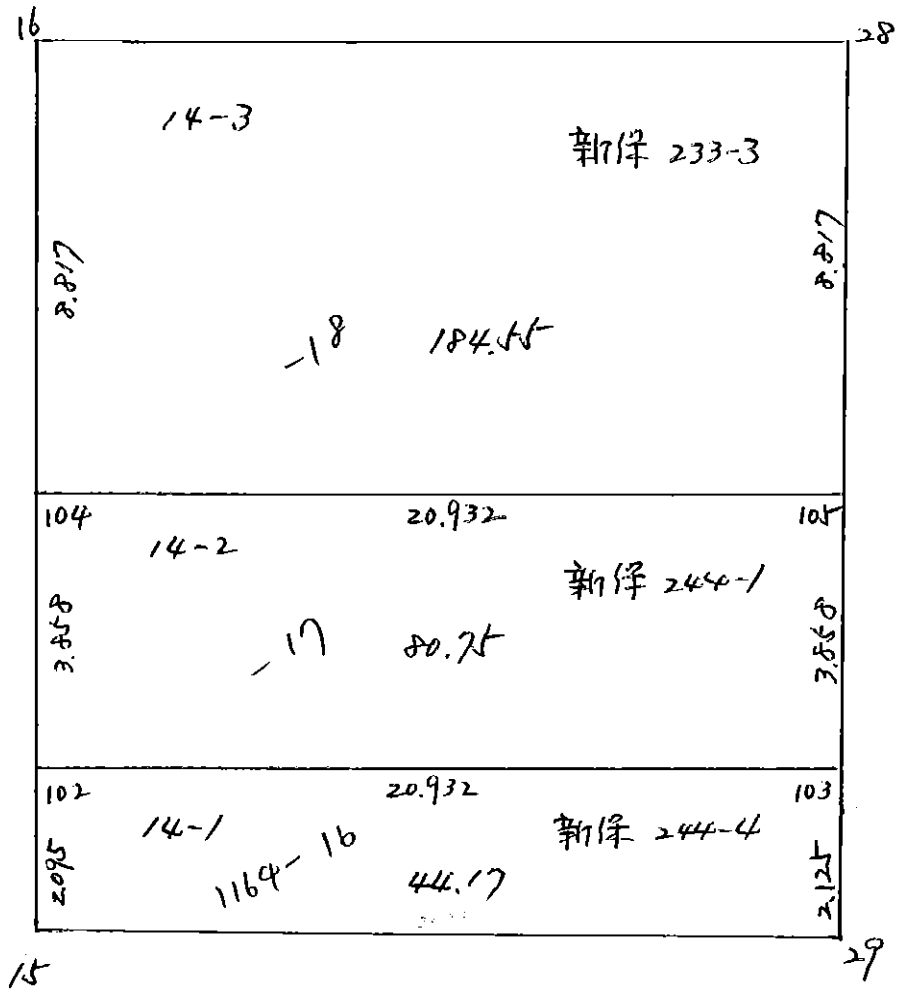 16
28
14-3
新保 233-3
8.817
8.817
-18
184.55
104
20.932
105
14-2
新保 244-1
3.858
3.858
-17
80.75
102
20.932
103
14-1
新保 244-4
2.095
2.125
1164-16
44.17
15
29